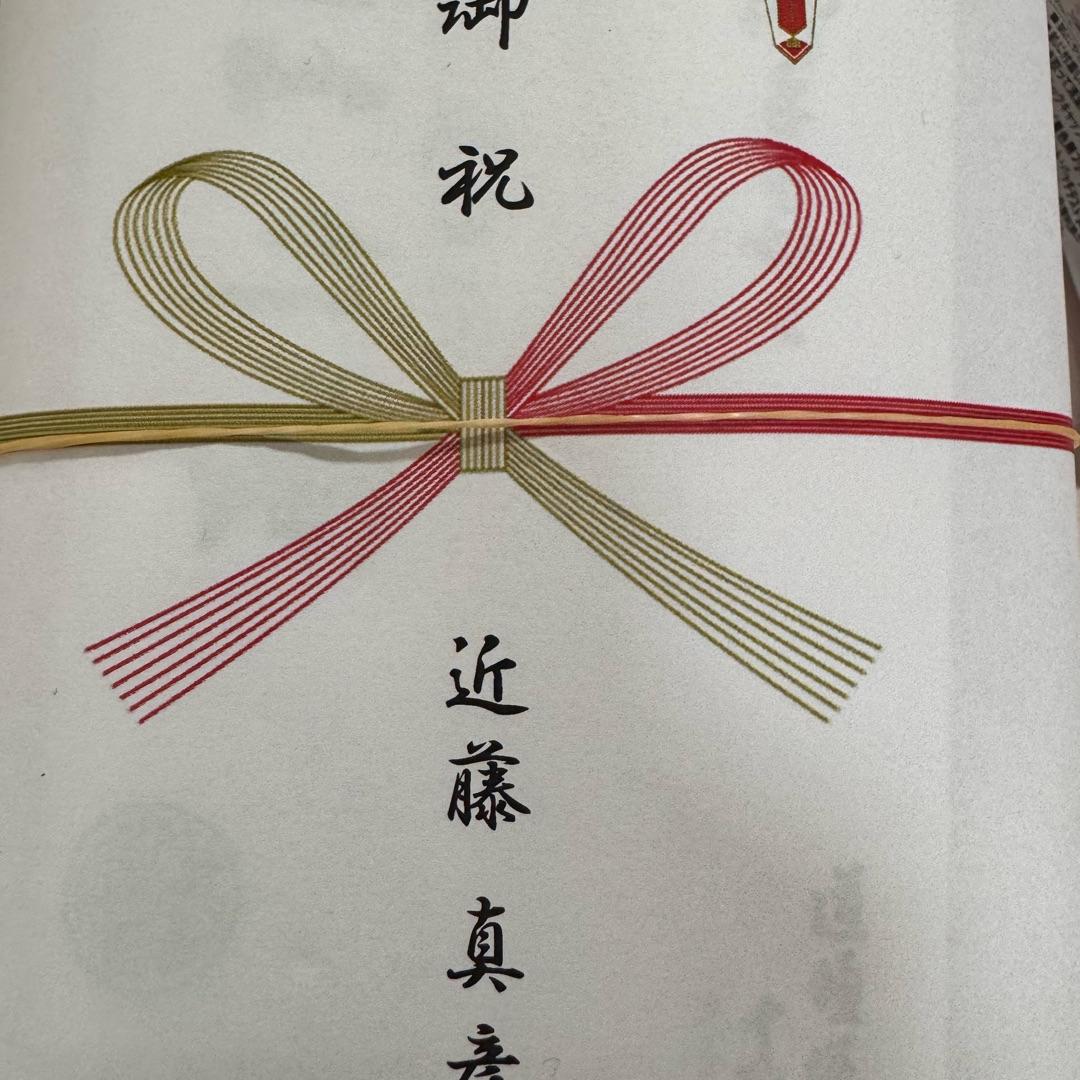 御祝
近藤真彦